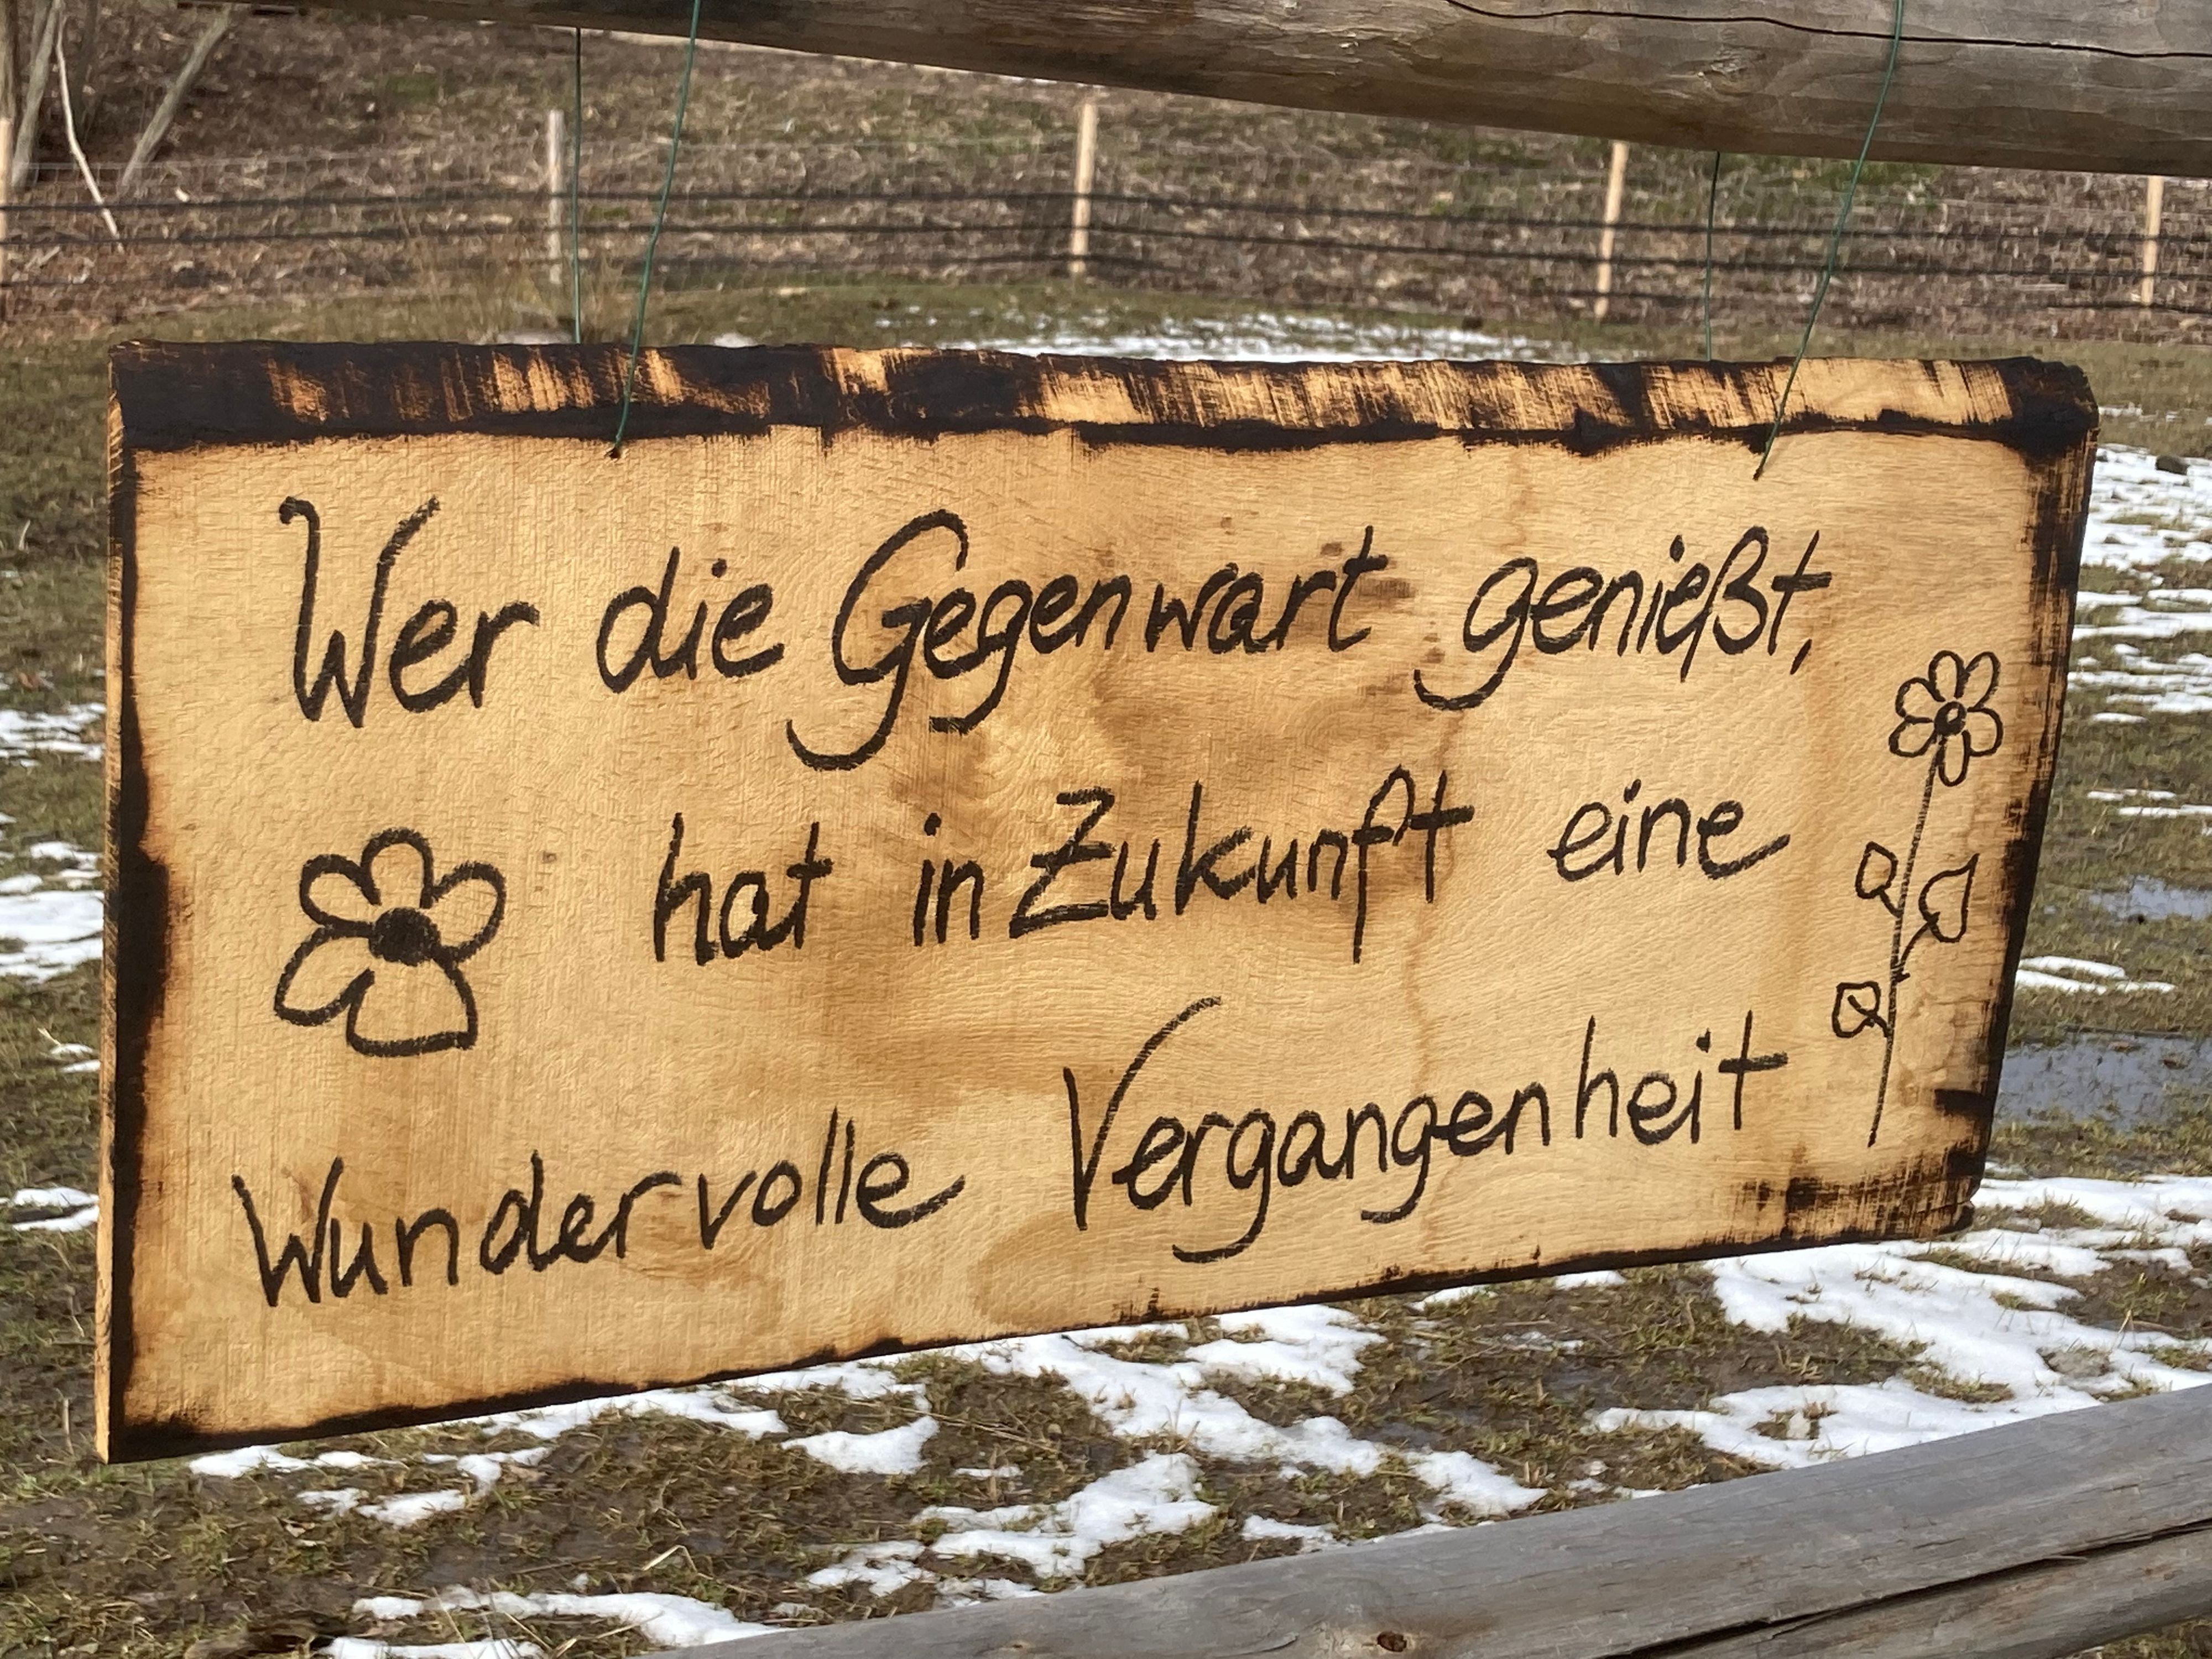 Wer die Gegenwart genießt,
hat in Zukunft eine
Wundervolle Vergangenheit